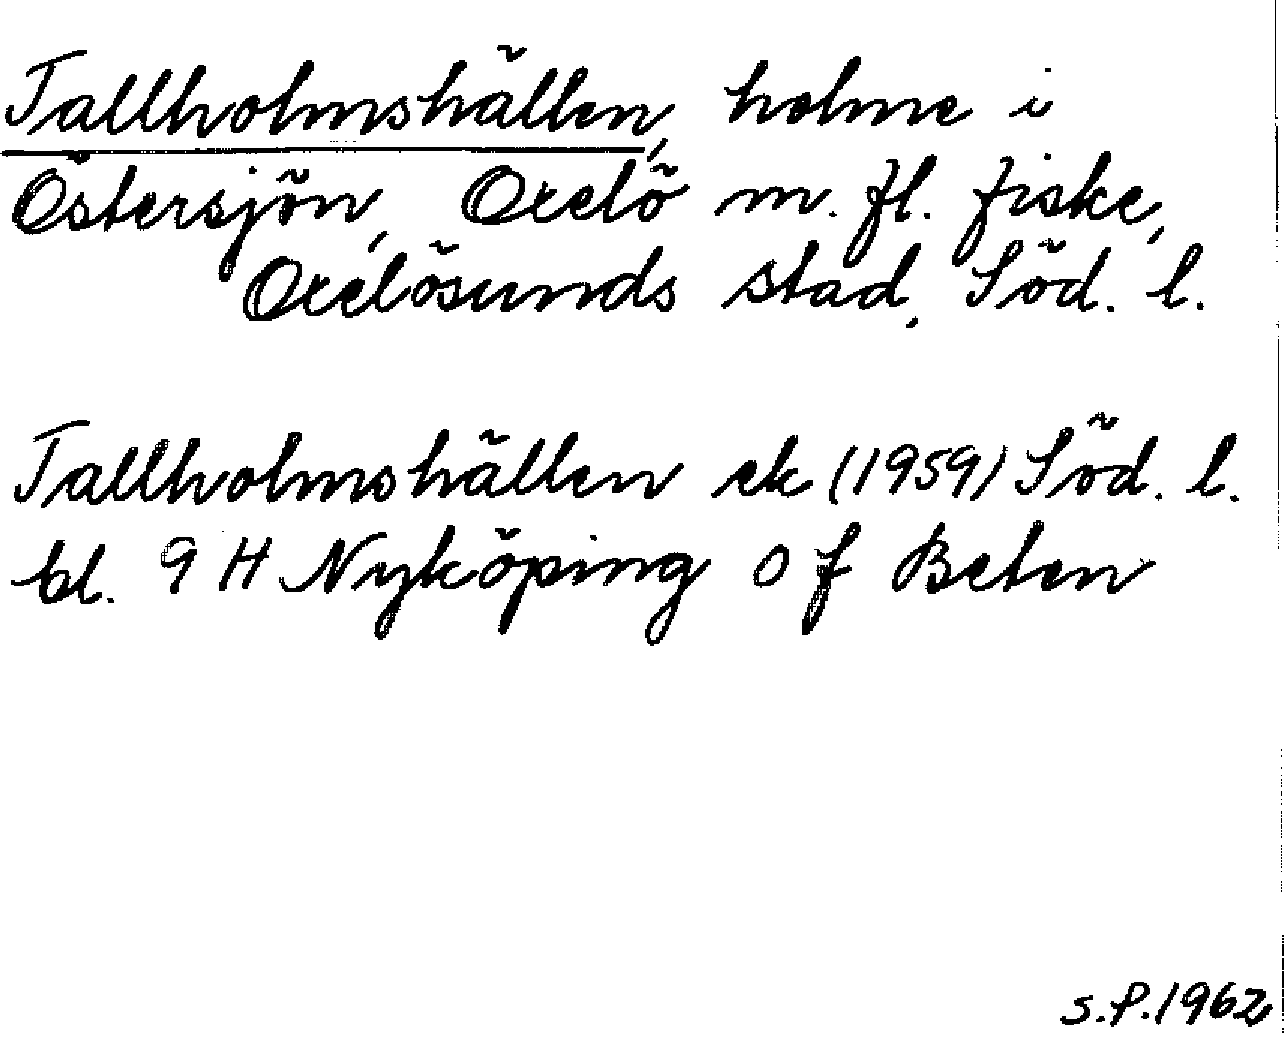 Tallholmshällen, holme i
Östersjön, Oxelö m. fl. fiske,
Oxelösunds stad, Söd. l.
Tallholmshällen ek (1959) Söd. l.
bl. 9 H Nyköping O f Beten
S.P. 1962